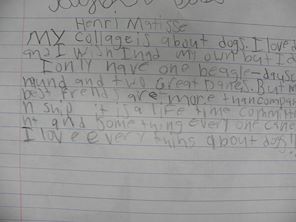 Henri Matisse
My collage is about dogs. I love
and I wish I had my own but I
I only have one beagle-daysc
hound and two Great Danes. But
best friends are more than compan
n ship it is a life time committ
nt and something every one can
I love every thing about dogs!